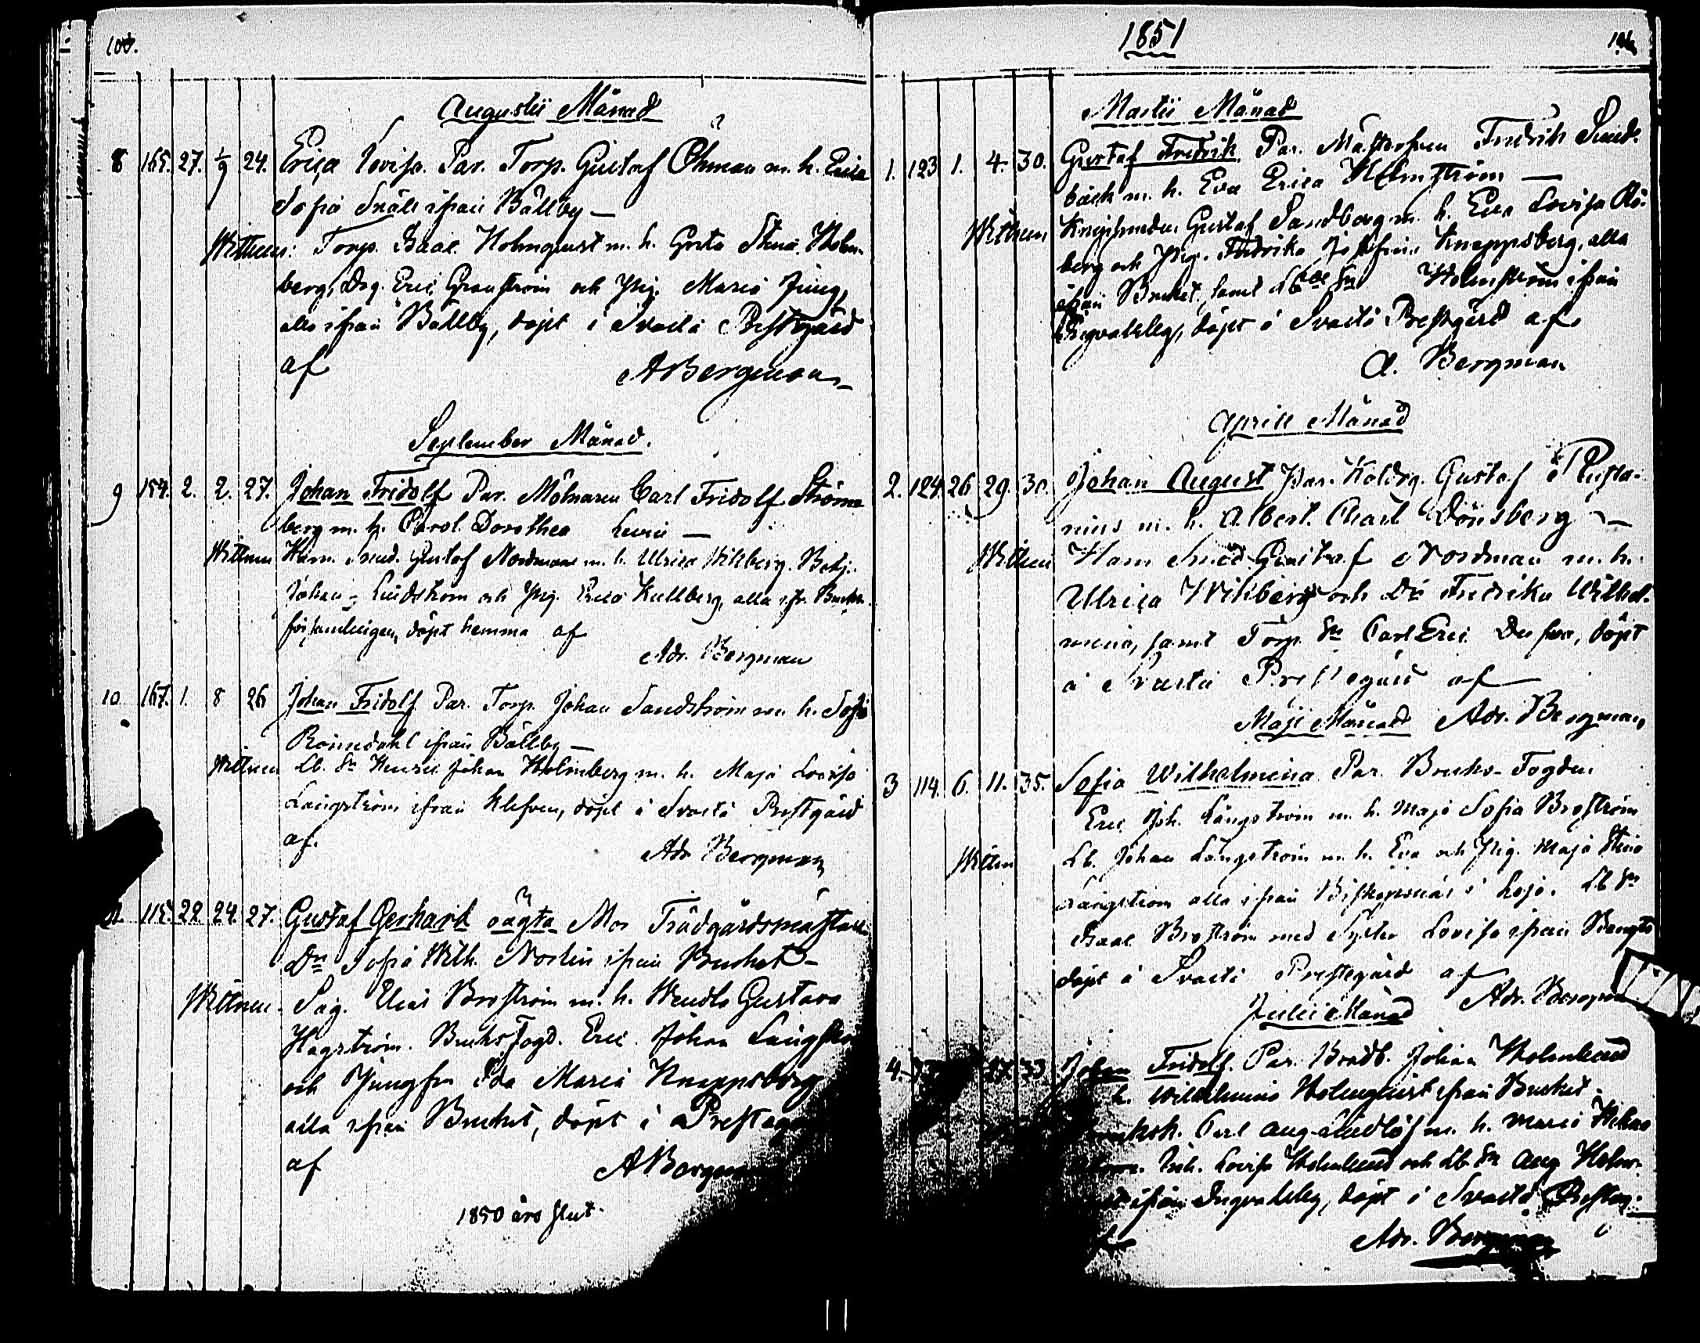 100.
Augustii Månad
8 165. 27. 1/9 24. Erica Lovisa Par. Torp. Gustaf Öhman m. h. Erica
Sofia Snäll ifrån Bällby —
Wittnen: Torp. Isaac Holmqvist m. h. Greta Stina Holm-
berg, Drg. Eric Granström och Pig. Maria Ljung,
alla ifrån Bällby, döpt i Svartå Prestgård
af
A Bergman
September Månad.
9 154. 2. 2. 27. Johan Fridolf Par. Mölnaren Carl Fridolf Ström-
berg m. h. Carol. Dorothea —
Wittnen Ham. Smed. Gustaf Nordman m. h. Ulrica Wikberg. Betj.
Johan Lindström och Pig. Erica Kullberg, alla ifr. Bruks
församlingen, döpt hemma af
Adr. Bergman
10 167. 1. 8 26 Johan Fridolf Par. Torp. Johan Sandström m. h. Sofia
Rönndahl ifrån Bällby —
Wittnen Lb. Sn Henric Johan Holmberg m. h. Maja Lovisa
Långström ifrån Klefven, döpt i Svartå Prestgård
af.
Adr Bergman
11. 115. 22. 24. 27. Gustaf Gerhard oägta Mor Trädgårdsmästare
Dn Sofia Wilh. Norlin ifrån Bruket —
Wittnen. Sag. Elias Broström m. h. Wendla Gustava
Hagström. Bruks Fogd. Eric Johan Långström
och Jungfru Ida Maria Knappsberg
alla ifrån Bruket, döpt i Prestgå
af
A Bergman
1850 års slut.
1851
Martii Månad
1. 123 1. 4. 30. Gustaf Fredrik Par. Mästersven Fredrik Sund-
bäck m. h. Eva Erica Holmström —
Wittnen Knipsmeden Gustaf Sandberg m. h. Eva Lovisa
berg och Pig. Fredrika Josefina Knappsberg, alla
ifrån Bruket, samt Lb Sn Holmström ifrån
Ingvalsby, döpt i Svartå Prestgård af
A. Bergman
Aprill Månad
2. 124. 26 29. 30. Johan August Par. Koldrg. Gustaf
m. h. Albert. Charl Dönsberg —
Wittnen Ham Smed Gustaf Nordman m. h.
Ulrica Wikberg och Dr Fredrika Wilhel-
mina, samt Torp. Sn Carl Eric, döpt
i Svartå Prestegård af
Maji Månad Adr. Bergman
3 114. 6. 11. 35. Sofia Wilhelmina Par. Bruks-Fogden
Eric Joh. Långström m. h. Maja Sofia Broström
Wittn Lb. Johan Långström m. h. Eva och Pig. Maja Stina
Långström alla ifrån Biskopsnäs i Lojo. Lb Sn
Isaac Broström med Syster Lovisa ifrån Bengts
döpt i Svartå Prestegård af
Julii Månad Adr. Bergman
4. 33 Johan Fridolf. Par. Brädb. Johan Holmlund
h. Wilhelmina Holmqvist ifrån Bruket.
Carl Aug. Lindlöf m. h. Maria
Enk. Lovisa Holmlund och Lb. Sn Aug Holm-
ifrån Ingvalsby, döpt i Svartå Presteg.
Adr. Bergman